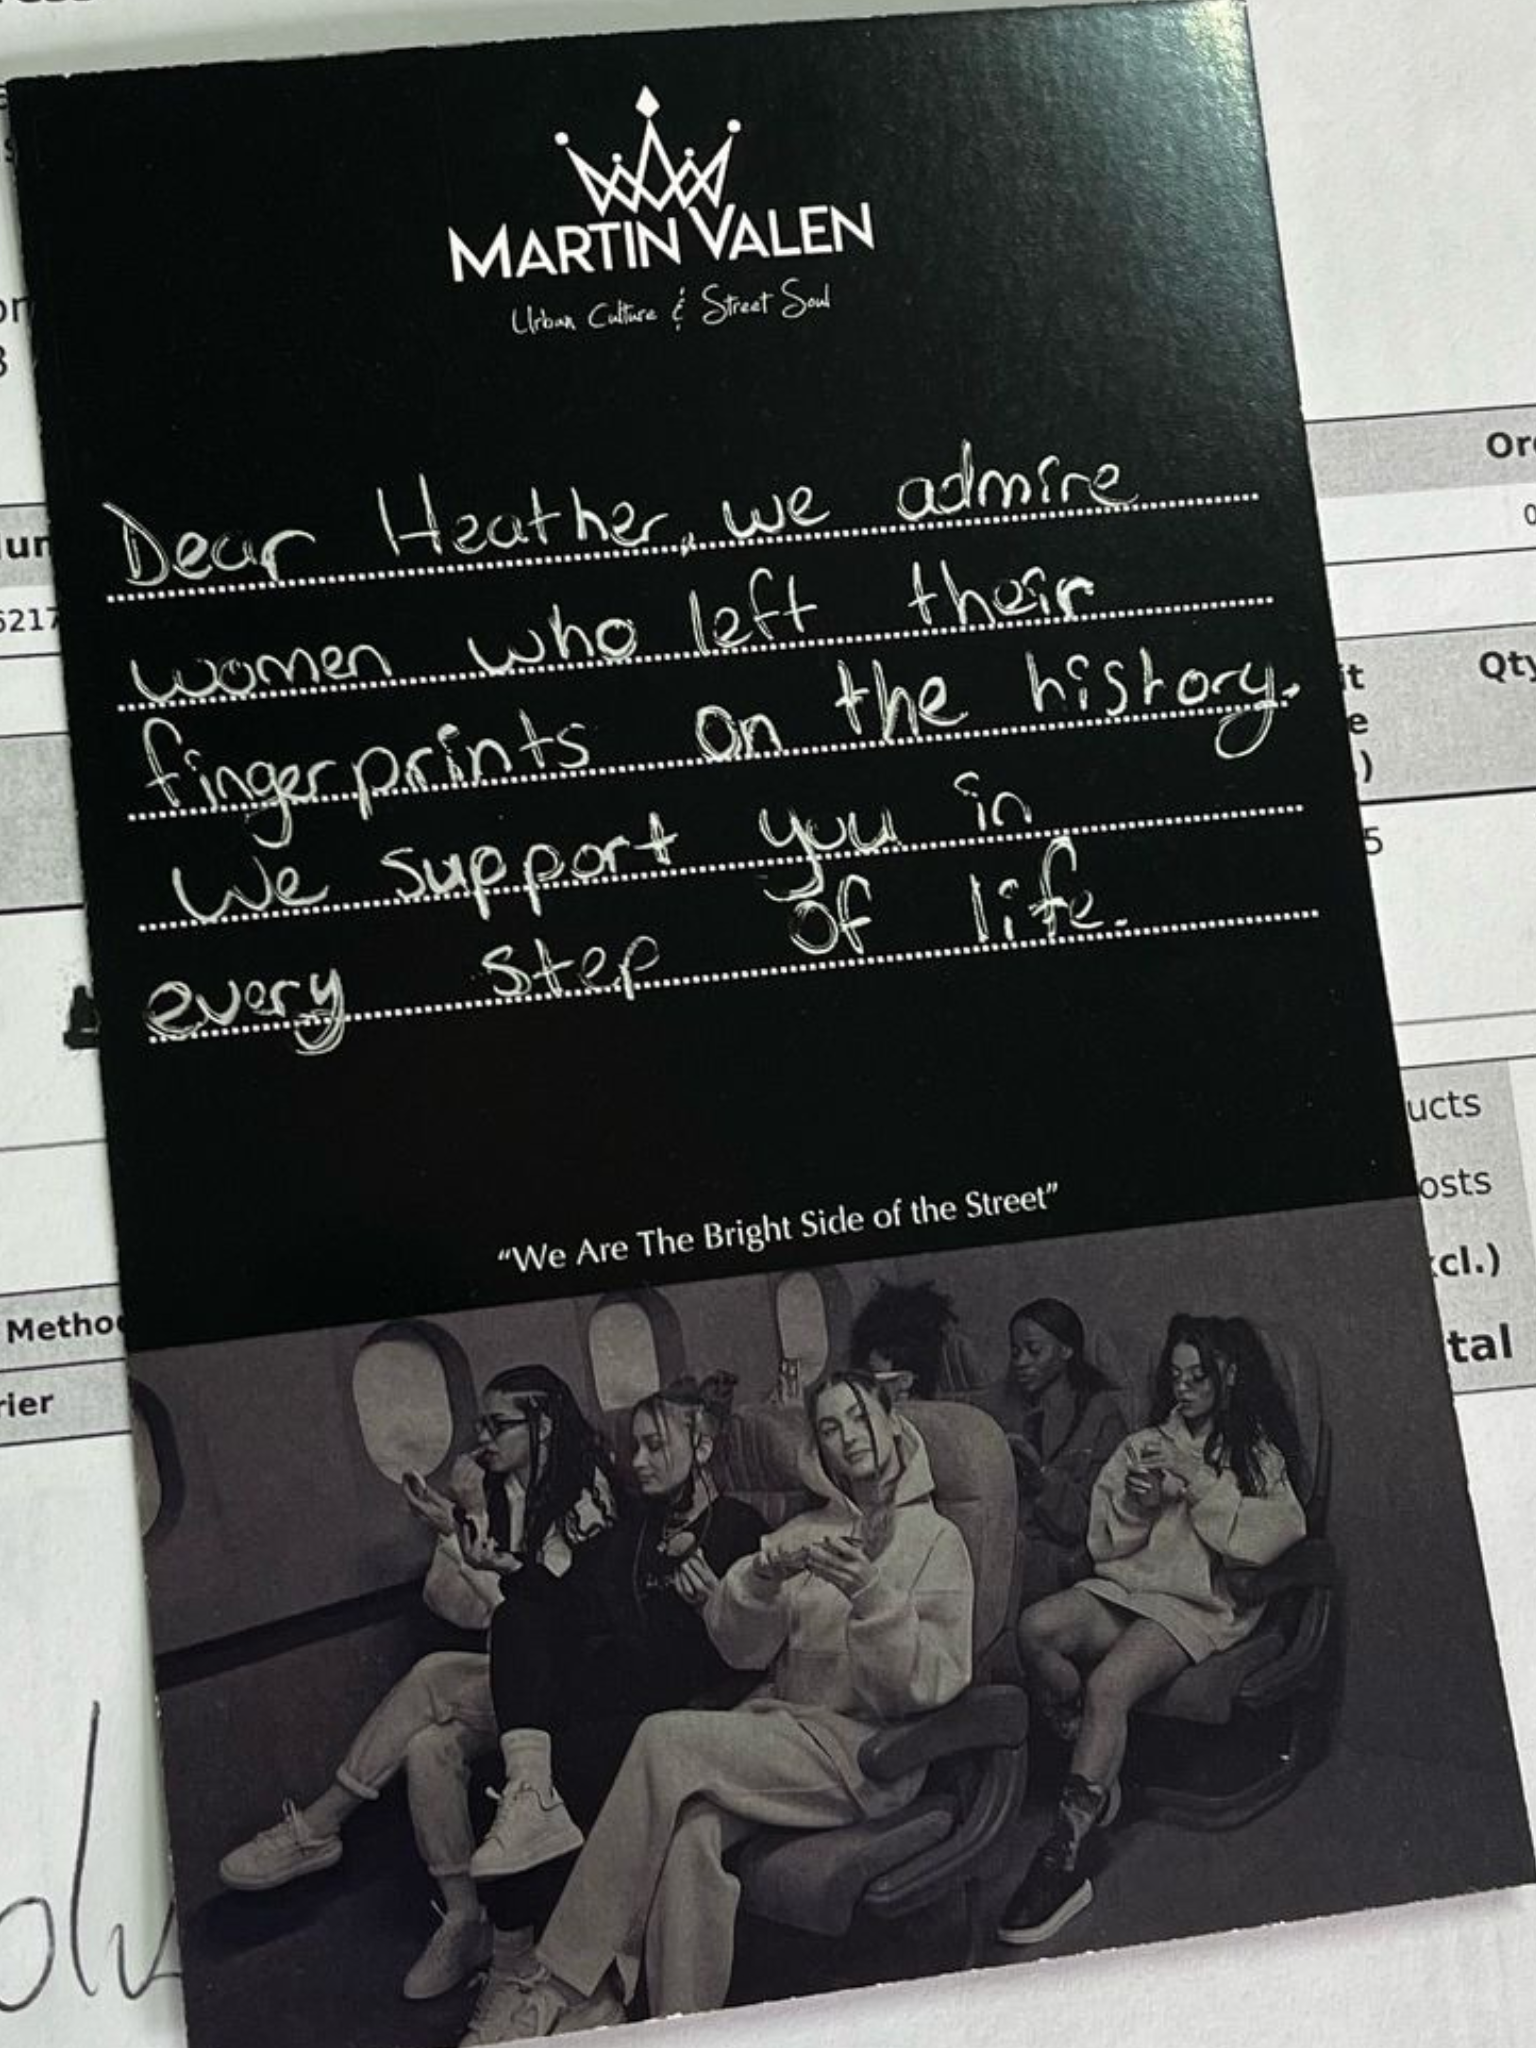 MARTIN VALEN
Urban Culture & Street Soul
Dear Heather, we admire
women who left their
fingerprints on the history.
We support you in
every step of life.
"We Are The Bright Side of the Street"
6217
Qty
5
ucts
osts
cl.)
tal
Metho
rier